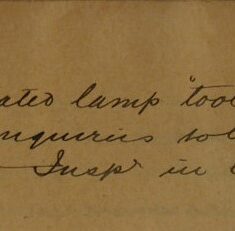 ated lamp "too
nquiries sol
Inspr in